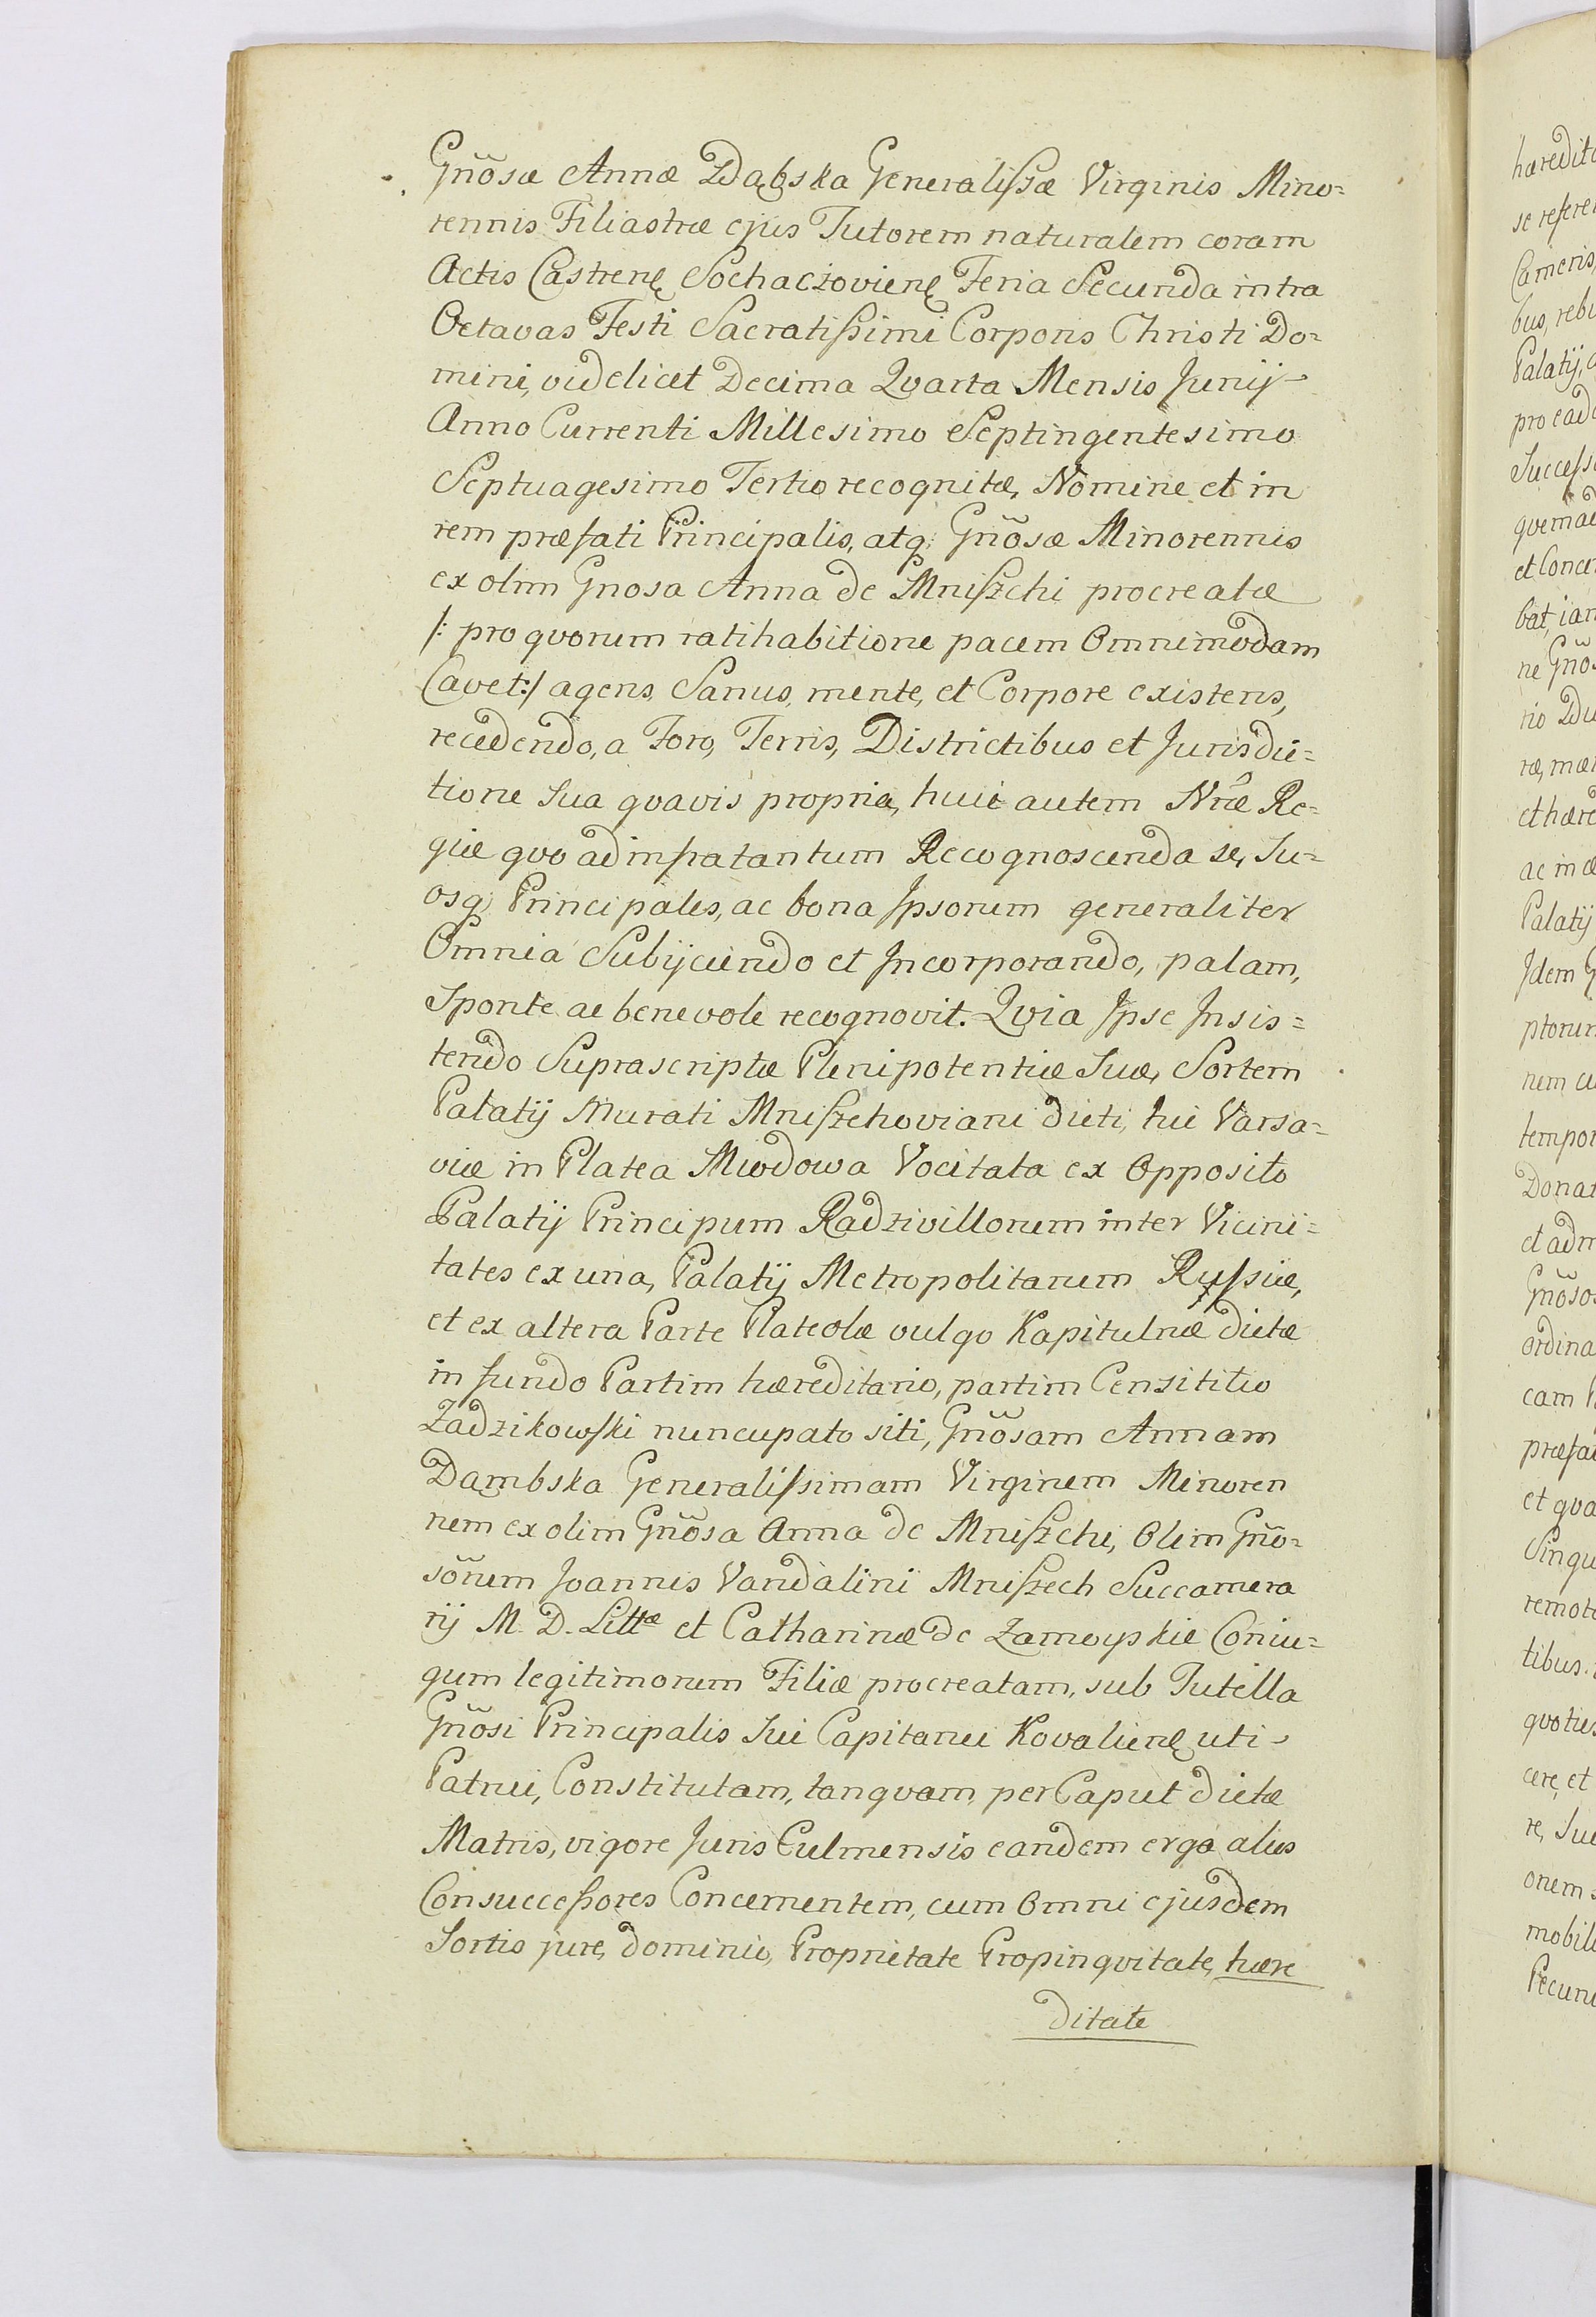 Gnõsæ Annæ Zdąbska Generalißæ Virginis Mino=
rennis Filiastræ ejus Tutorem naturalem coram
Actis Castrenę Sochaczovienę Feria Secunda intra
Octavas Festi Sacratißimi Corporis Christi Do=
mini, videlicet Decima Qvarta Mensis Junij
Anno Currenti Millesimo Septingentesimo
Septuagesimo Tertio recognitæ, Nomine et in
rem præfati Principalis, atq; Gnõsæ Minorennis
ex olim Gnosa Anna de Mniszchi procreatæ
/: pro qvorum ratihabitione pacem Omnimodam
Cavet :/ agens, Sanus, mente, et Corpore existens,
recedendo, a Foro, Terris, Districtibus et Jurisdic=
tione Sua qvavis propria, huic autem Nræ Re=
giæ qvo ad infra tantum Recognoscenda se, Su=
osq; Principales, ac bona Ipsorum generaliter
Omnia Subijciendo et Incorporando, palam,
Sponte ac benevole recognovit. Qvia Ipse Insis=
tendo Suprascriptæ Plenipotentiæ Suæ, Sortem
Palatij Murati Mniszchoviani dicti, hic Varsa=
viæ in Platea Miodowa Vocitata ex Opposito
Palatij Principum Radzivillorum inter Vicini=
tates ex una, Palatij Metropolitarum Rußiæ,
et ex altera Parte Plateolæ vulgo Kapitulnæ dictæ
in fundo Partim hæreditario, partim Censititio
Zadzikowski nuncupato siti, Gnõsam Annam
Dąmbska Generalißimam Virginem Minoren
nem ex olim Gnõsa Anna de Mniszchi, Olim Gnõ=
sõrum Joannis Vandalini Mniszech Succamera
rij M. D. Littæ et Catharinæ de Zamoyskie Coniu=
gum legitimorum Filiæ procreatam, sub Tutella
Gnõsi Principalis Sui Capitanei Kovalienę uti
Patrui, Constitutam, tanqvam per Caput dictæ
Matris, vigore Juris Culmensis eandem erga alios
Conсucceßores Concernentem, cum Omni ejusdem
Sortis jure, dominio, Proprietate Propinqvitate, hære
ditate